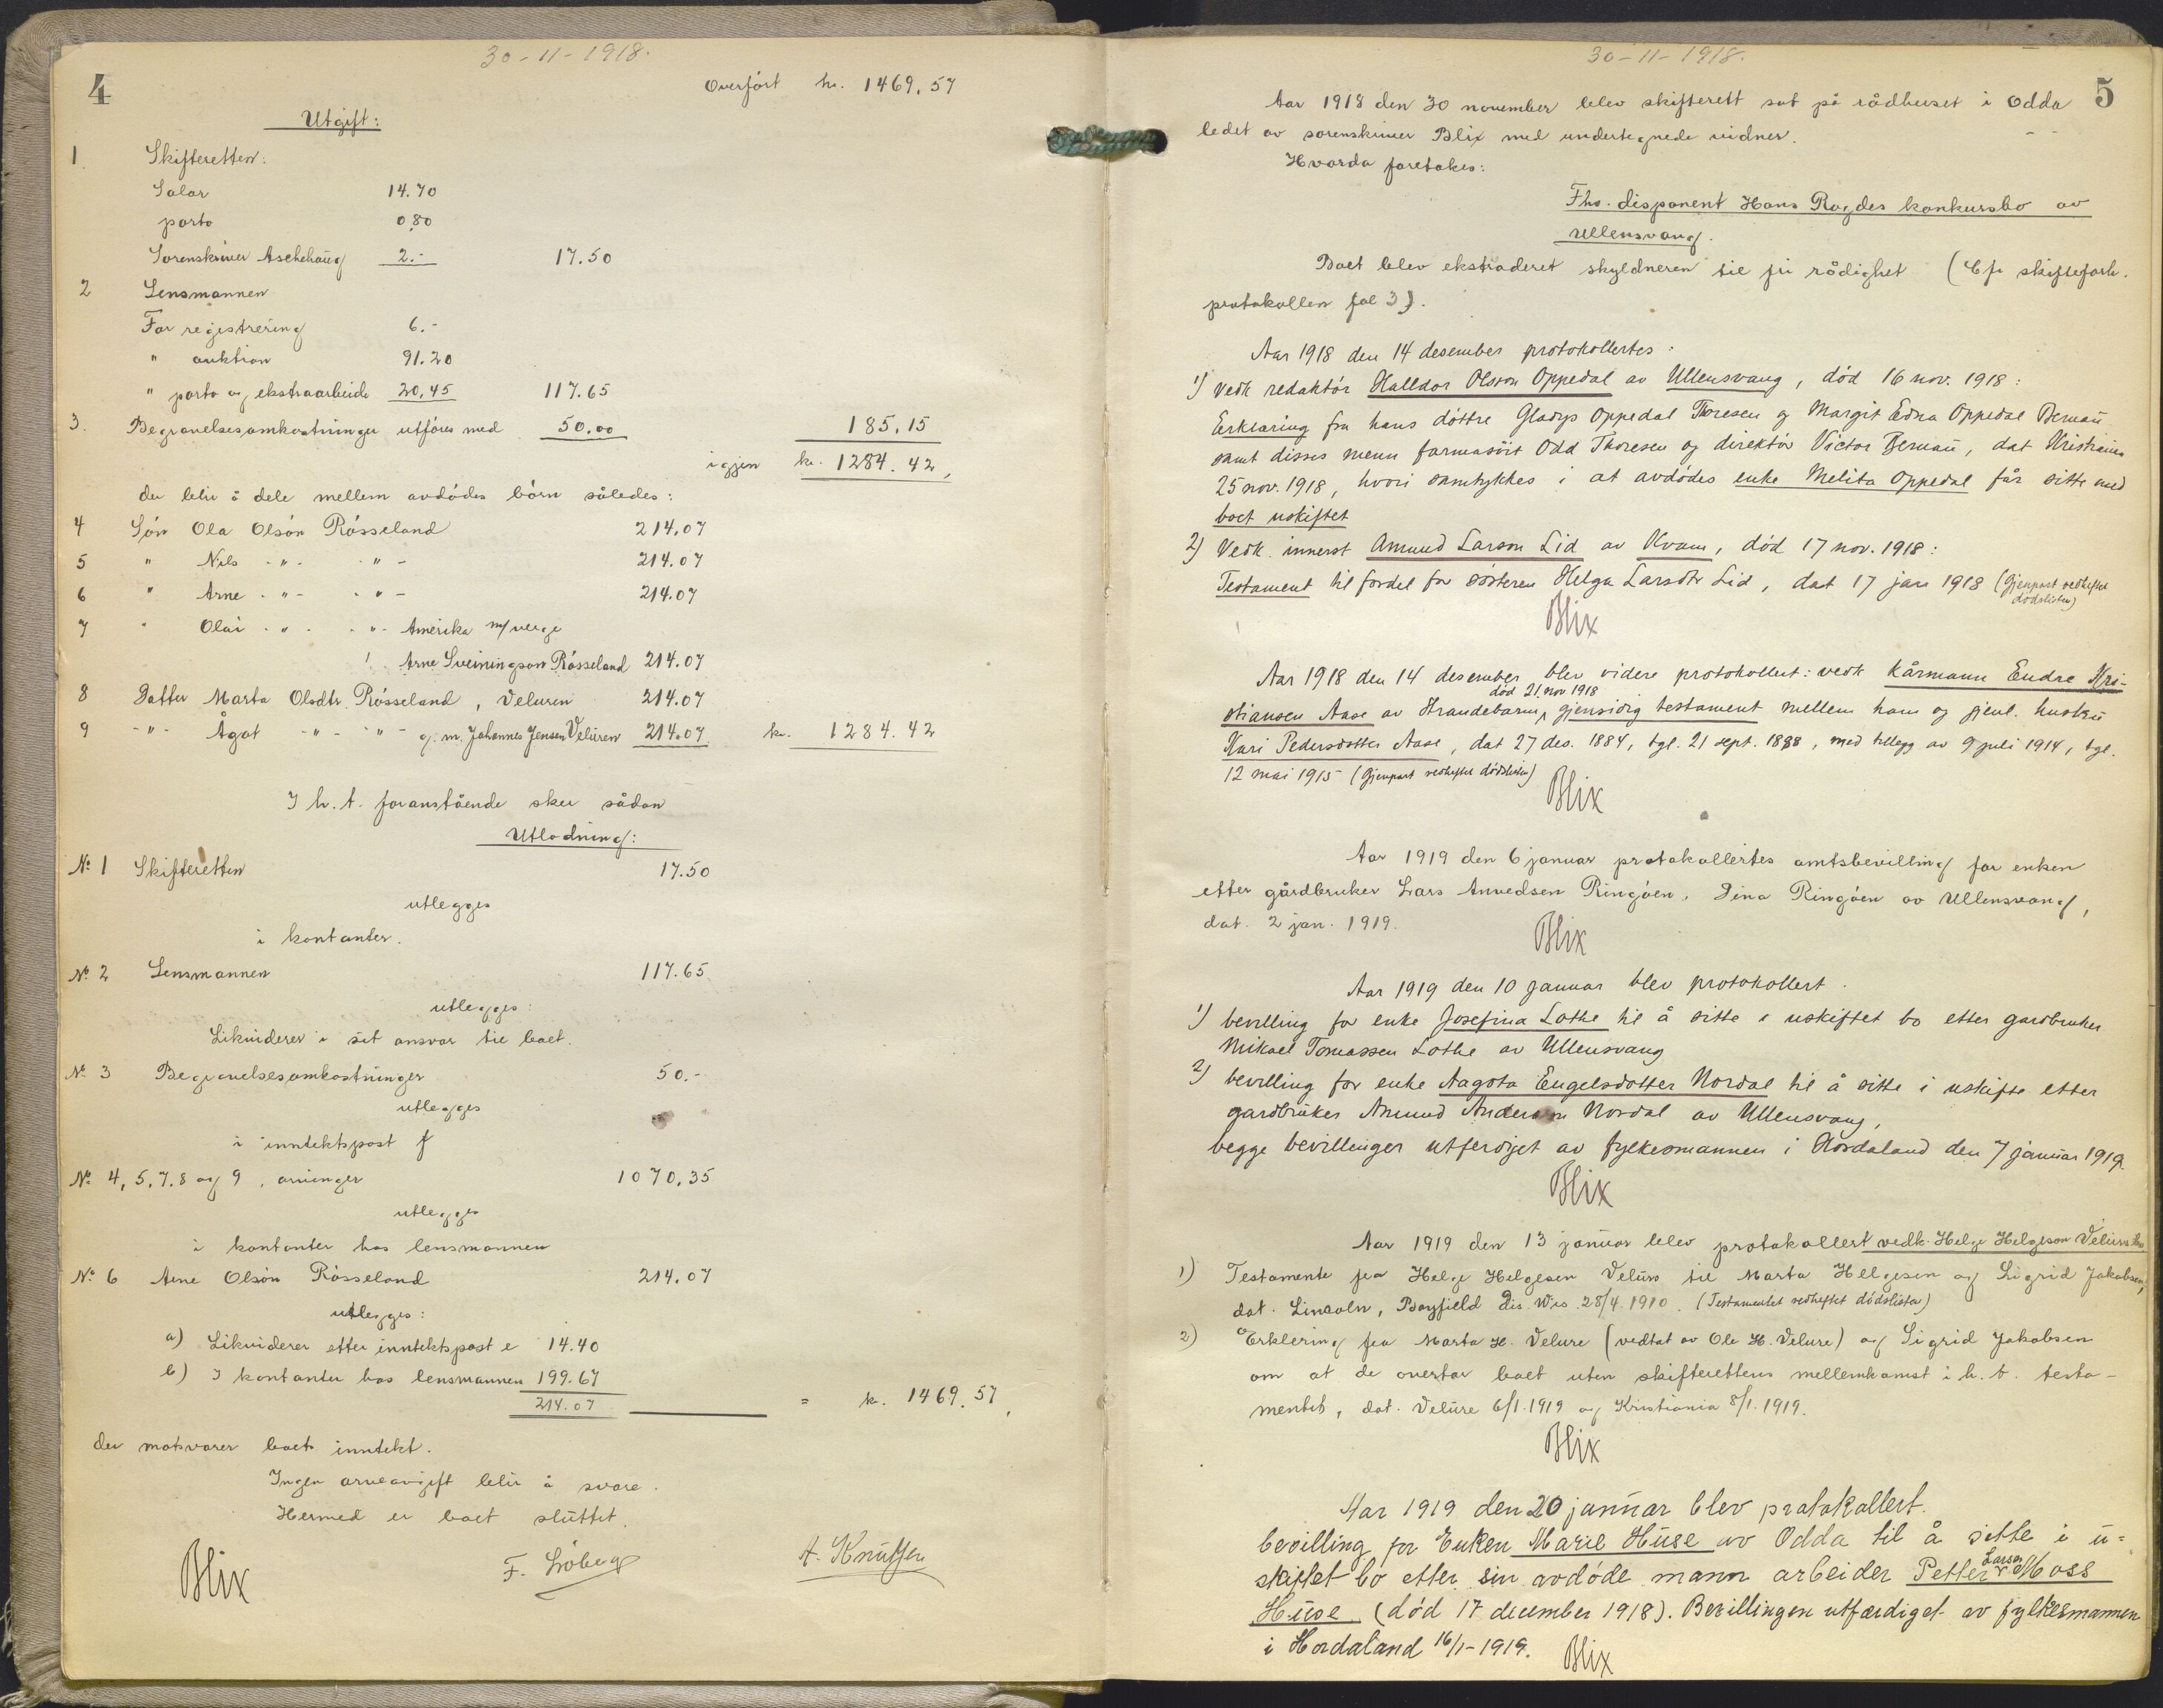 30-11-1918.
4
Overført kr. 1469.57
Utgift:
1. Skifteretten:
Salær 14.70
porto 0.80
Sorenskriver Aschehoug 2.- 17.50
2 Lensmannen
For registrering 6.-
" auktion 91.20
" porto og ekstraarbeide 20.45 117.65
3. Begravelsesomkostninger utføres med 50.00 185.15
igjen kr. 1284.42,
der blir å dele mellem avdødes børn således:
4 Søn Ola Olsøn Røsseland 214.07
5 " Nils -"- -"- 214.07
6 " Arne -"- -"- 214.07
7 " Olai -"- -"- Amerika m/verge
Arne Sveiningson Røsseland 214.07
8 Datter Marta Olsdtr. Røsseland, Veluren 214.07
9 -"- Ågot -"- -"- g. m. Johannes Jensen Veluren 214.07 kr. 1284.42
I h. t. foranstående sker sådan
Utlodning:
No. 1 Skifteretten 17.50
utlegges
i kontanter.
No. 2 Lensmannen 117.65
utlegges:
Likviderer i sit ansvar til boet.
No. 3 Begravelsesomkostninger 50.-
utlegges
i inntektspost f
No. 4, 5, 7, 8 og 9, arvinger 1070.35
utlegges
i kontanter hos lensmannen
No. 6 Arne Olsøn Røsseland 214.07
utlegges:
a) Likviderer etter inntektspost e 14.40
b) I kontanter hos lensmannen 199.67
214.07 = kr. 1469.57,
der motsvarer boets inntekt.
Ingen arveavgift blir å svare.
Hermed er boet sluttet.
Blix F. Løberg A. Knutsen
30-11-1918.
5
Aar 1918 den 30 november blev skifterett sat på rådhuset i Odda
ledet av sorenskriver Blix med undertegnede vidner.
Hvorda foretokes:
Fhv. disponent Hans Ragdes konkursbo av
Ullensvang.
Boet blev ekstraderet skyldneren til fri rådighet (Cfr skifteforh.
protokollen fol 3).
Aar 1918 den 14 desember protokollertes:
1) vedk redaktør Halldor Olsson Oppedal av Ullensvang, død 16 nov. 1918:
Erklæring fra hans døttre Gladys Oppedal Thoresen og Margit Edna Oppedal Bernau
samt disses menn farmasöit Odd Thoresen og direktør Victor Bernau, dat Kristiania
25 nov. 1918, hvori samtykkes i at avdødes enke Melita Oppedal får sitte med
boet uskiftet
2) Vedk. innerst Amund Larson Lid av Kvam, død 17 nov. 1918:
Testament til fordel for søsteren Helga Larsdtr Lid, dat 17 jan 1918 (Gjenpart vedheftet
dødslisten)
Blix
Aar 1918 den 14 desember blev videre protokollert: vedk kårmann Endre Kri-
død 21 nov 1918
stiansen Aase av Strandebarm, gjensidig testament mellem ham og gjenl. hustru
Kari Pedersdotter Aase, dat 27 des. 1884, tgl. 21 sept. 1888, med tillegg av 9 juli 1914, tgl.
12 mai 1915 (Gjenpart vedheftet dødslisten)
Blix
Aar 1919 den 6 januar protokollertes amtsbevilling for enken
etter gårdbruker Lars Anvedsen Ringøen, Dina Ringøen av Ullensvang,
dat. 2 jan. 1919.
Blix
Aar 1919 den 10 januar blev protokollert.
1) bevilling for enke Josefina Lothe til å sitte i uskiftet bo etter gardbruker
Mikael Tomassen Lothe av Ullensvang
2) bevilling for enke Aagota Engelsdotter Nordal til å sitte i uskifte etter
gardbruker Amund Anderson Nordal av Ullensvang,
begge bevillinger utferdiget av fylkesmannen i Hordaland den 7 januar 1919.
Blix
Aar 1919 den 13 januar blev protokollert vedk. Helge Helgeson Velures bo
1) Testamente fra Helge Helgesen Velure til Marta Helgesen og Sigrid Jakobsen,
dat. Lincoln, Bayfield Dis. Wis. 28/4. 1910. (Testamentet vedheftet dødslisten)
2) Erklering fra Marta H. Velure (vedtat av Ole H. Velure) og Sigrid Jakobsen
om at de overtar boet uten skifterettens mellemkomst i h. t. testa-
mentet, dat. Velure 6/1.1919 og Kristiania 8/1.1919.
Blix
Aar 1919 den 20 januar blev protokollert.
bevilling for Enken Marie Huse av Odda til å sitte i u-
skiftet bo etter sin avdøde mann arbeider Petter Larsen Moss
Huse (død 17 december 1918). Bevillingen utfærdiget av fylkesmannen
i Hordaland 16/1-1919. Blix